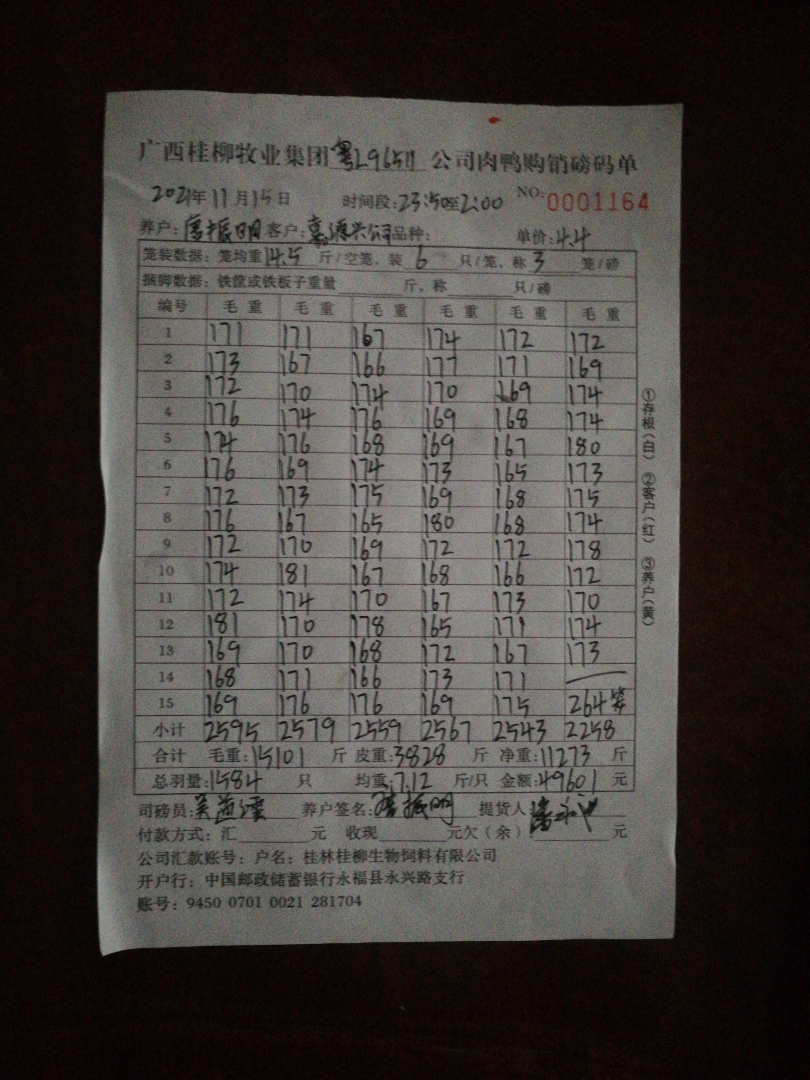 广西桂柳牧业集团粤L96511公司肉鸭购销磅码单
2021年11月15日 时间段:23:50至2:00 NO:0001164
养户:唐振明 客户:嘉源兴公司 品种: 单价:4.4
笼装数据:笼均重14.5斤/空笼、装6只/笼、称3笼/磅
捆脚数据:铁筐或铁板子重量 斤、称 只/磅
编号 毛重 毛重 毛重 毛重 毛重 毛重
1 171 171 167 174 172 172
2 173 167 166 177 171 169
3 172 170 174 170 169 174
4 176 174 176 169 168 174
5 174 176 168 169 167 180
6 176 169 174 173 165 173
7 172 173 175 169 168 175
8 176 167 165 180 168 174
9 172 170 169 172 172 178
10 174 181 167 168 166 172
11 172 174 170 167 173 170
12 181 170 178 165 171 174
13 169 170 168 172 167 173
14 168 171 166 173 171 —
15 169 176 176 169 175 264笼
小计 2595 2579 2559 2567 2543 2258
合计 毛重:15101斤 皮重:3828斤 净重:11273斤
总羽量:1584只 均重:7.12斤/只 金额:49601元
司磅员: 养户签名:唐振明 提货人:
付款方式:汇 元 收现 元欠(余) 元
公司汇款账号:户名:桂林桂柳生物饲料有限公司
开户行:中国邮政储蓄银行永福县永兴路支行
账号:9450 0701 0021 281704
①存根(白) ②客户(红) ③养户(黄)